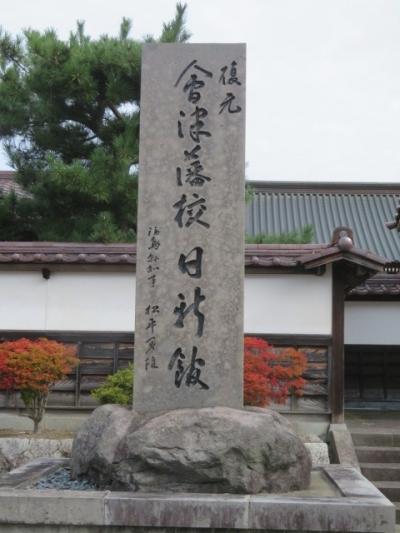 復元
會津藩校日新館
福島県知事 松平勇雄